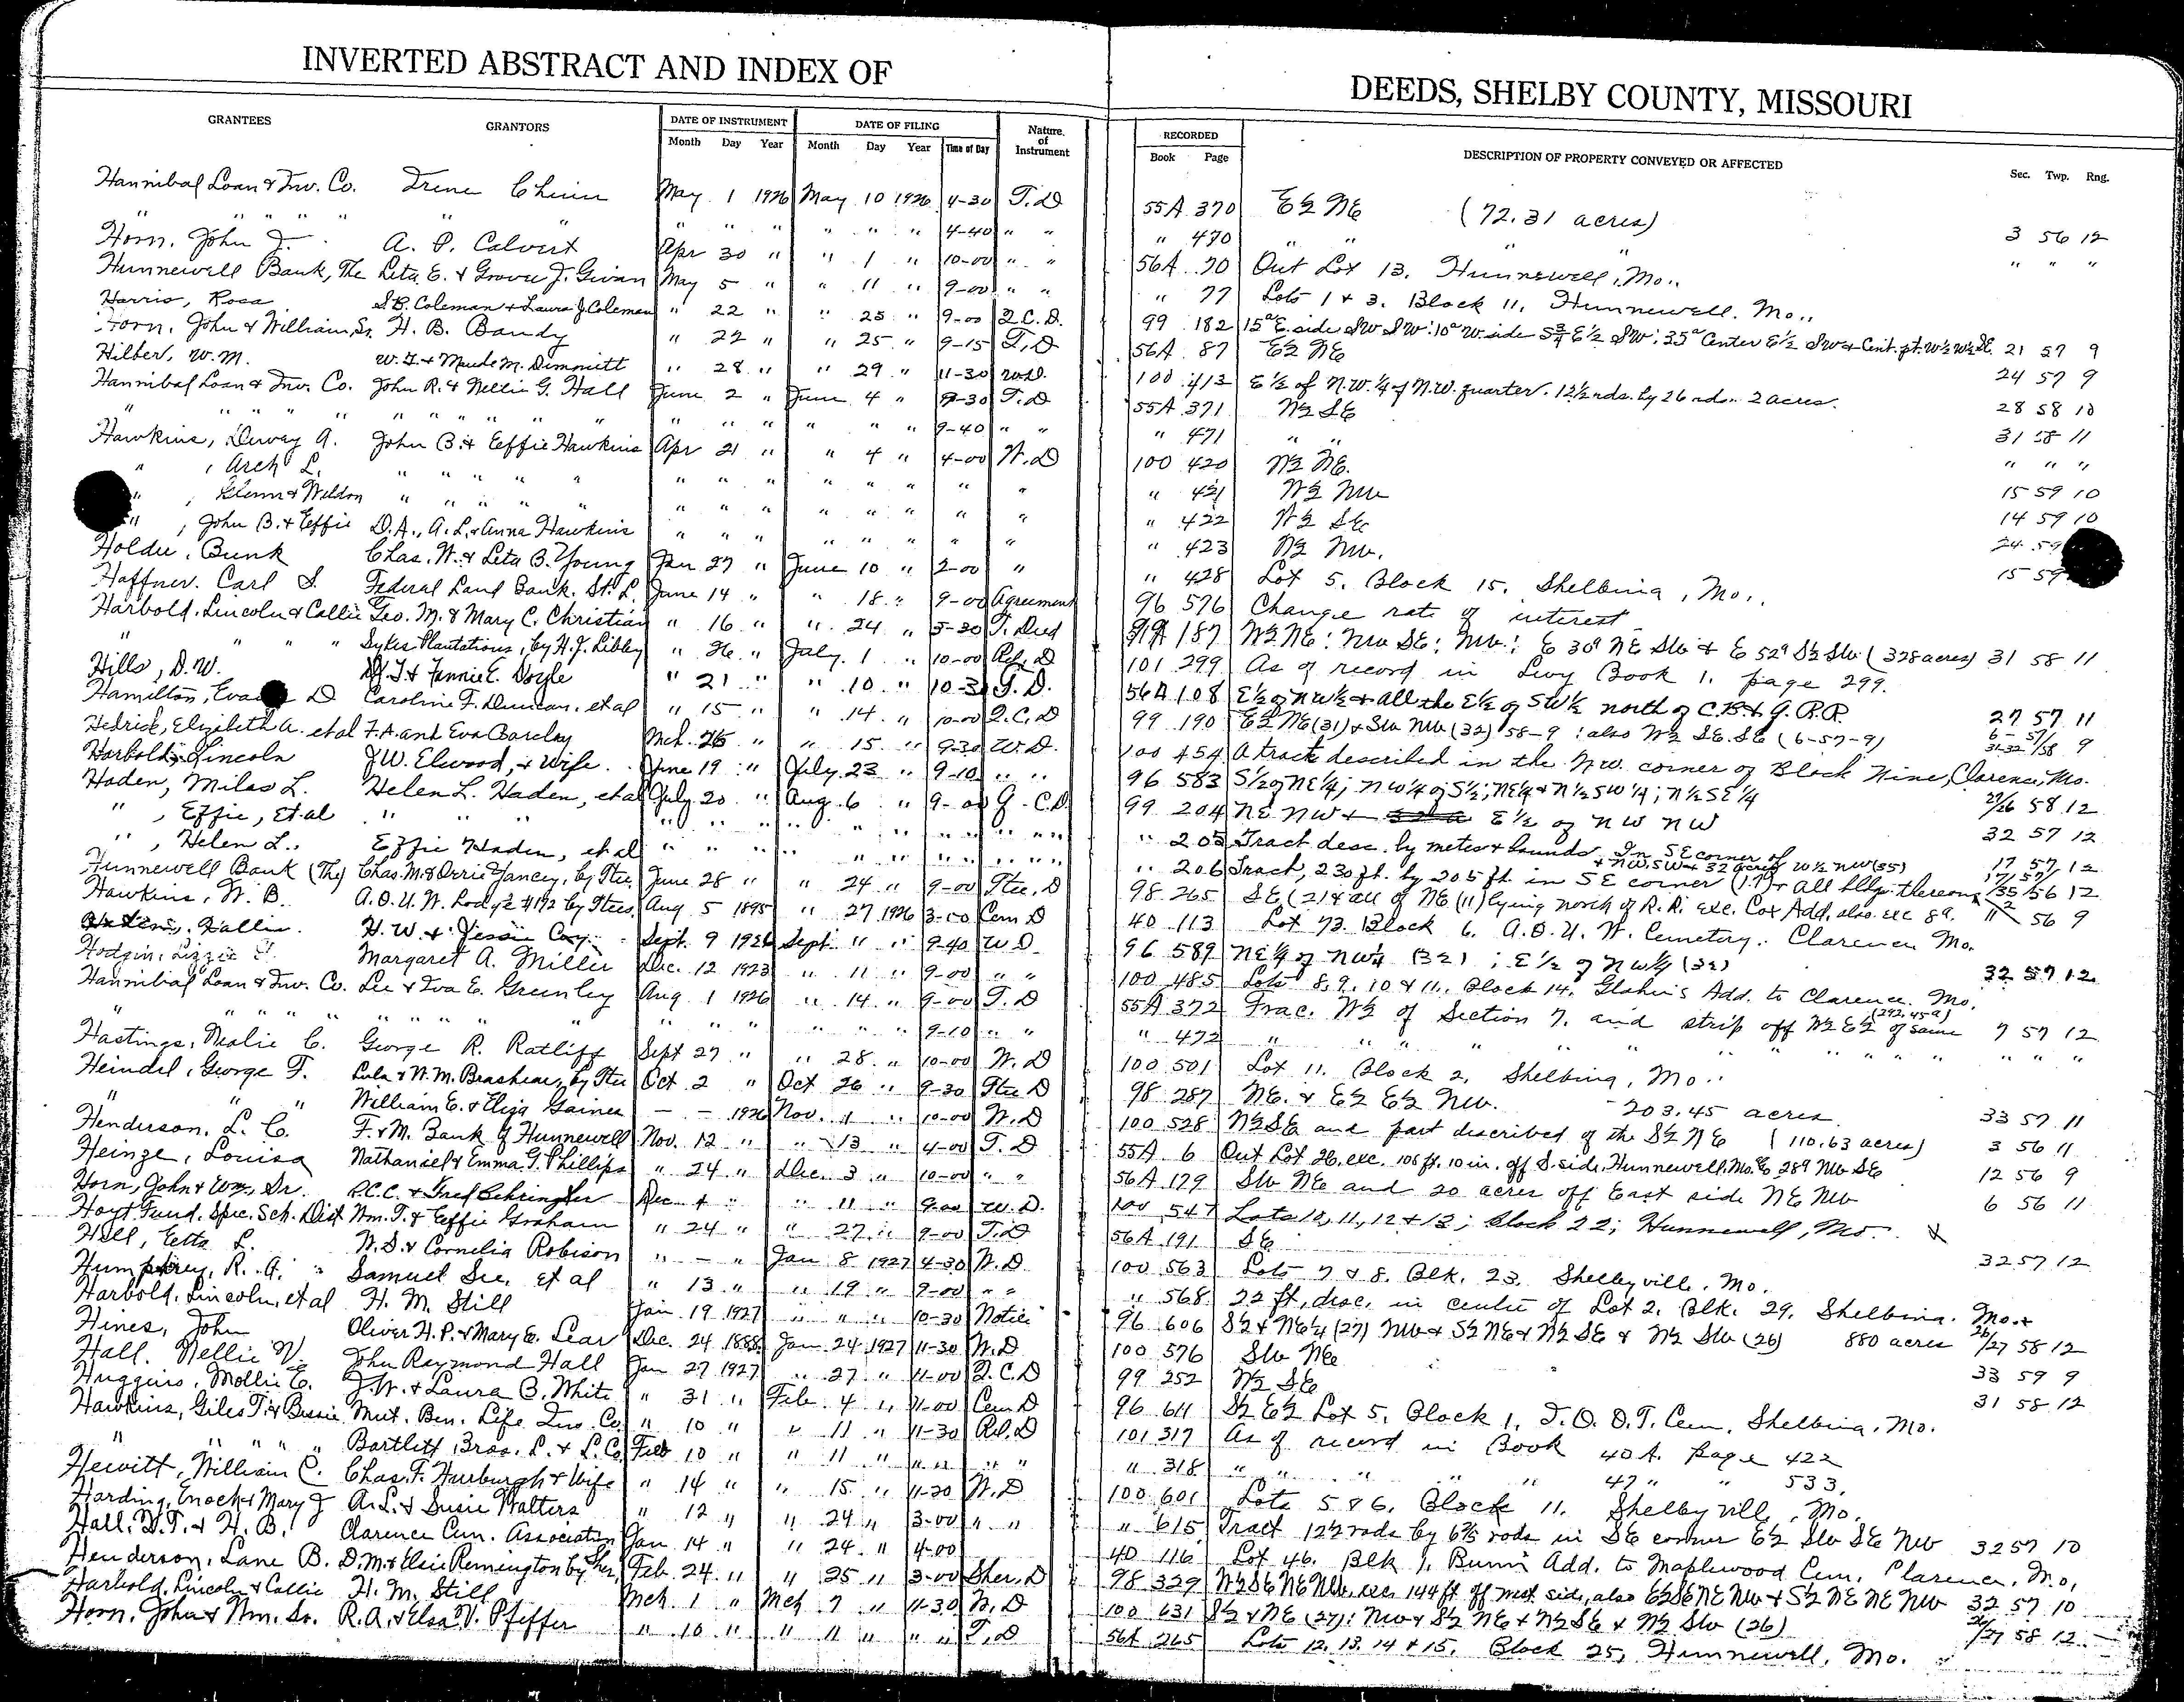 INVERTED ABSTRACT AND INDEX OF DEEDS, SHELBY COUNTY, MISSOURI
GRANTEES GRANTORS DATE OF INSTRUMENT DATE OF FILING Nature of Instrument RECORDED DESCRIPTION OF PROPERTY CONVEYED OR AFFECTED
Month Day Year Month Day Year Time of Day Book Page Sec. Twp. Rng.
Hannibal Loan & Inv. Co. Irene Chinn May 1 1926 May 10 1926 4-30 T.D 55A 370 E½ NE (72.31 acres) 3 56 12
" " " " " " " " " " " " 4-40 " " " 470 " " " " " "
Horn, John J. A. P. Calvert Apr 30 " " 1 " 10-00 " " 56A 70 Out Lot 13, Hunnewell, Mo.
Hunnewell Bank, The Leta E. & Grover J. Givan May 5 " " 11 " 9-00 " " " 77 Lots 1 & 3. Block 11, Hunnewell, Mo.
Harris, Rosa S.B. Coleman & Laura J. Coleman " 22 " " 25 " 9-00 Q.C.D. 99 182 15ª E. side SW SW; 10ª W. side S¾ E½ SW; 35ª Center E½ SW & Cent. pt. W½ W½ SE. 21 57 9
Horn, John & William, Sr. H. B. Bandy " 22 " " 25 " 9-15 T.D 56A 87 E½ NE 24 57 9
Hilber, W.M. W.T. & Maude M. Dimmitt " 28 " " 29 " 11-30 W.D. 100 413 E½ of N.W.¼ of N.W. quarter. 12½ rds. by 26 rds. 2 acres. 28 58 10
Hannibal Loan & Inv. Co. John R. & Nellie G. Hall June 2 " June 4 " 9-30 T.D 55A 371 W½ SE 31 58 11
" " " " " " " " " " " " " " 9-40 " " " 471 " " " " "
Hawkins, Dewey A. John B. & Effie Hawkins Apr 21 " " 4 " 4-00 W.D 100 420 W½ NE. 15 59 10
" , Arch L. " " " " " " " " " " " " " 421 W½ NW 14 59 10
" , Glenn & Weldon " " " " " " " " " " " " 422 W½ SE 24 59
" , John B. & Effie D.A., A.L. & Anna Hawkins " " " " " " " " " 423 W½ NW. 15 59
Holder, Bunk Chas. W. & Leta B. Young Jan 27 " June 10 " 2-00 " " 428 Lot 5, Block 15, Shelbina, Mo.
Haffner, Carl S. Federal Land Bank, St. L. June 14 " " 18 " 9-00 Agreement 96 576 Change rate of interest
Harbold, Lincoln & Callie Geo. M. & Mary C. Christian " 16 " " 24 " 3-30 T. Deed 187 W½ NE; NW SE; NW; E 30ª NE SW & E 52ª S½ SW (328 acres) 31 58 11
" " " " Sykes Plantations, by H.J. Libby " 26 " July 1 " 10-00 Rel. D 101 299 As of record in Levy Book 1, page 299.
Hills, D.W. & Fannie E. Doyle " 21 " " 10 " 10-30 T.D. 56A 108 E½ of NW½ & all the E½ of SW½ north of C.B. & Q. R.R. 27 57 11
Hamilton, Eva D Caroline F. Duncan, et al " 15 " " 14 " 10-00 Q.C.D 99 190 E½ NE (31) & SW NW (32) 58-9; also W½ SE. SE (6-57-9) 6- 57/ 31-32/58 9
Hedrick, Elizabeth A. et al F.A. and Eva Barclay Mch. 26 " " 15 " 9-30 W.D. 100 454 A tract described in the N.W. corner of Block Nine, Clarence, Mo.
Harbold, Lincoln J.W. Elwood, & Wife June 19 " July 23 " 9-10 " " 96 583 S½ of NE¼; NW¼ of S½; NE¼ & N½ SW¼; N½ SE¼ 27/26 58 12
Haden, Milas L. Helen L. Haden, et al July 20 " Aug. 6 " 9-00 Q.C.D 99 204 NE NW & E½ of NW NW 32 57 12
" , Effie, Et al " " " " " " " " " " " " " 205 Tract desc. by metes & bounds in SE corner of W½ NW (35) 17 57 12
" , Helen L. Effie Haden, et al " " " " " " " " " " 206 Tract, 230 ft. by 205 ft. in SE corner (17) & All bldgs thereon & NW, SW & 32 acres 17/57/ 35/56 12
Hunnewell Bank (The) Chas. M. & Orrie Yancey, by Ttee June 28 " " 24 " 9-00 Ttee. D 98 265 SE (2) & all of NE (11) lying north of R.R. exc. Cox Add. also exc 8ª. 2 11 56 9
Hawkins, W. B. A.O.U.W. Lodge #172 by Ttees Aug 5 1895 " 27 1926 3-00 Cem D 40 113 Lot 73. Block 6. A.O.U.W. Cemetery. Clarence Mo.
Hallie. H. W. & Jessie Coy Sept. 9 1926 Sept. " " 9-40 W.D. 96 589 NE¼ of NW¼ (32); E½ of NW¼ (32) 32 57 12
Hodgin, Lizzie Margaret A. Miller Dec. 12 1923 " 11 " 9-00 " " 100 485 Lots 8, 9, 10 & 11, Block 14, Glahn's Add. to Clarence, Mo.
Hannibal Loan & Inv. Co. Lee & Iva E. Greenley Aug 1 1926 " 14 " 9-00 T.D 55A 372 Frac. W½ of Section 7, and strip off W½ E½ of same (292.45a) 7 57 12
" " " " " " " " " " " " " 9-10 " " " 472 " " " " " " " " "
Hastings, Nealie C. George R. Ratliff Sept 27 " " 28 " 10-00 W.D 100 501 Lot 11, Block 2, Shelbina, Mo.
Heindel, George F. Lula & W.M. Brashear, by Ttee Oct 2 " Oct 26 " 9-30 Ttee D 98 287 NE. & E½ E½ NW. 203.45 acres 33 57 11
" " " William E. & Eliza Gaines - - 1926 Nov. 1 " 10-00 W.D 100 528 W½ SE and part described of the S½ NE (110.63 acres) 3 56 11
Henderson, L. C. F. & M. Bank of Hunnewell Nov. 12 " " 13 " 4-00 T.D 55A 6 Out Lot 26, exc. 108 ft. 10 in. off S. side, Hunnewell, Mo. & 28ª NW SE 12 56 9
Heinze, Louisa Nathaniel & Emma G. Phillips " 24 " Dec. 3 " 10-00 " " 56A 179 SW NE and 20 acres off East side NE NW 6 56 11
Horn, John & Wm., Sr. P.C.C. & Fred Behringer Dec 4 " " 11 " 9-00 W.D. 100 547 Lots 10, 11, 12 & 13; Block 22; Hunnewell, Mo.
Hoyt Fund, Spec. Sch. Dist Wm. T. & Effie Graham " 24 " " 27 " 9-00 T.D 56A 191 SE 32 57 12
Hill, Etta L. W. D. & Cornelia Robison " - " Jan 8 1927 4-30 W.D 100 563 Lots 7 & 8. Blk. 23. Shelbyville, Mo.
Humphrey, R. A. Samuel See, et al " 13 " " 19 " 9-00 " " " 568 22 ft. desc. in centre of Lot 2, Blk. 29, Shelbina, Mo.
Harbold, Lincoln, et al H. M. Still Jan 19 1927 " " " 10-30 Notice 96 606 S½ & NE¼ (27) NW & S½ NE & W½ SE & W½ SW (26) 880 acres 26/27 58 12
Hines, John Oliver H. P. & Mary E. Lear Dec. 24 1888 Jan 24 1927 11-30 W.D 100 576 SW NE 33 59 9
Hall, Nellie V. John Raymond Hall Jan 27 1927 " 27 " 11-00 Q.C.D 99 252 W½ SE 31 58 12
Huggins, Mollie E. J.W. & Laura B. White " 31 " Feb. 4 " 11-00 Cem D 96 611 S½ E½ Lot 5, Block 1, I.O.O.F. Cem. Shelbina, Mo.
Hawkins, Giles T. & Bessie Mut. Ben. Life Ins. Co. " 10 " " 11 " 11-30 Rel. D 101 317 As of record in Book 40A. page 422
" " " " Bartlett Bros. L. & L. Co Feb 10 " " 11 " " " " " " 318 " " " " 47 " 533.
Hewitt, William C. Chas. F. Hurburgh & Wife " 14 " " 15 " 11-30 W.D 100 601 Lots 5 & 6, Block 11, Shelbyville, Mo.
Harding, Enoch & Mary J A.L. & Susie Walters " 12 " " 24 " 3-00 " " " 615 Tract 12½ rods by 6⅔ rods in SE corner E½ SW SE NW 32 57 10
Hall, W.T. & H. B. Clarence Cem. Association Jan. 14 " " 24 " 4-00 40 116 Lot 46. Blk 1, Bum's Add. to Maplewood Cem. Clarence, Mo.
Henderson, Lane B. D.M. & Elsie Remington by Sher. Feb. 24 " " 25 " 3-00 Sher. D 98 329 W½ SE NE NW, exc. 144 ft off west side, also E½ SE NE NW & S½ NE NE NW 32 57 10
Harbold, Lincoln & Callie H. M. Still Mch. 1 " Mch 7 " 11-30 W.D 100 631 S½ & NE (27); NW & S½ NE & W½ SE & W½ SW (26) 26/27 58 12
Horn, John & Wm. Sr. R.A. & Elsa V. Pfiffer " 10 " " 11 " " " T.D 56A 265 Lots 12, 13, 14 & 15, Block 25, Hunnewell, Mo.